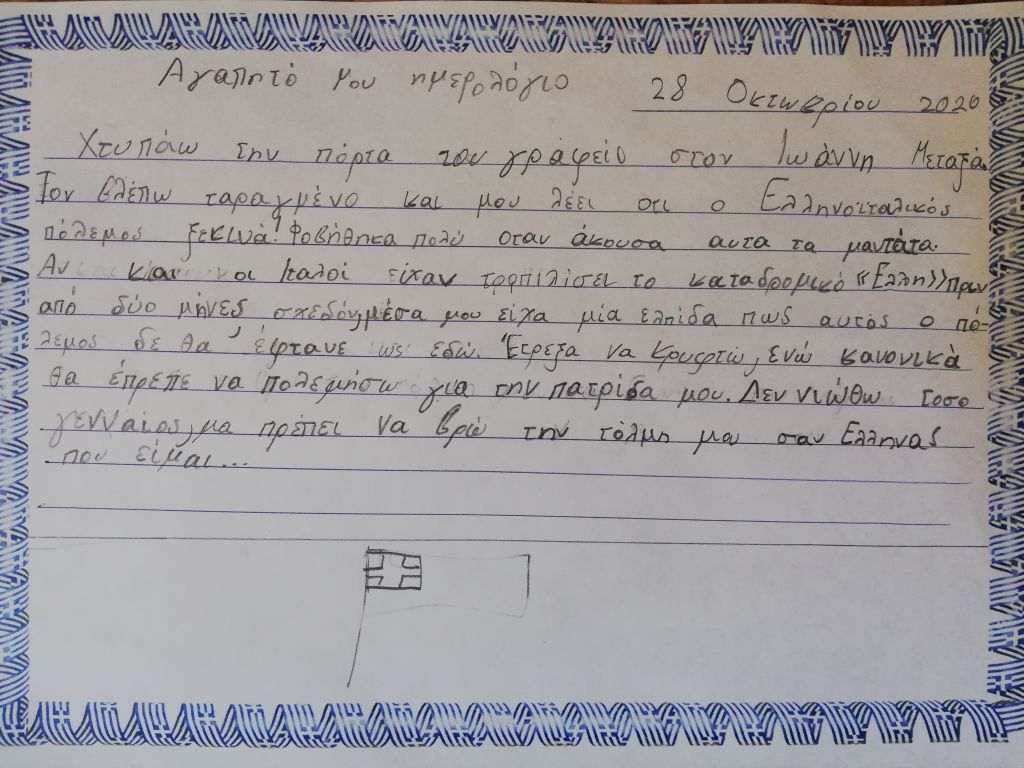 Αγαπητό μου ημερολόγιο 28 Οκτωβρίου 2020
Χτυπάω την πόρτα του γραφείο στον Ιωάννη Μεταξά.
Τον βλέπω ταραγμένο και μου λέει οτι ο Ελληνοϊταλικός
πόλεμος ξεκινά! Φοβήθηκα πολύ οταν άκουσα αυτα τα μαντάτα.
Αν και οι Ιταλοί είχαν τορπιλίσει το καταδρομικό «Ελλη» πριν
από δύο μήνες σχεδόν, μέσα μου είχα μία ελπίδα πως αυτός ο πό-
λεμος δε θα έφτανε ως εδώ. Έτρεξα να κρυφτώ, ενώ κανονικά
θα έπρεπε να πολεμήσω για την πατρίδα μου. Δεν νιώθω τοσο
γενναίος, μα πρέπει να βρώ την τόλμη μου σαν Ελληνας
που είμαι...